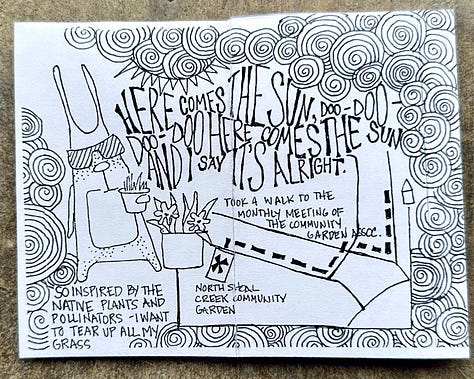 HERE COMES THE SUN, DOO-DOO-
DOO-DOO HERE COMES THE SUN
AND I SAY IT'S ALRIGHT.
TOOK A WALK TO THE
MONTHLY MEETING OF
THE COMMUNITY
GARDEN ASSOC.
NORTH SHOAL
CREEK COMMUNITY
GARDEN
SO INSPIRED BY THE
NATIVE PLANTS AND
POLLINATORS - I WANT
TO TEAR UP ALL MY
GRASS